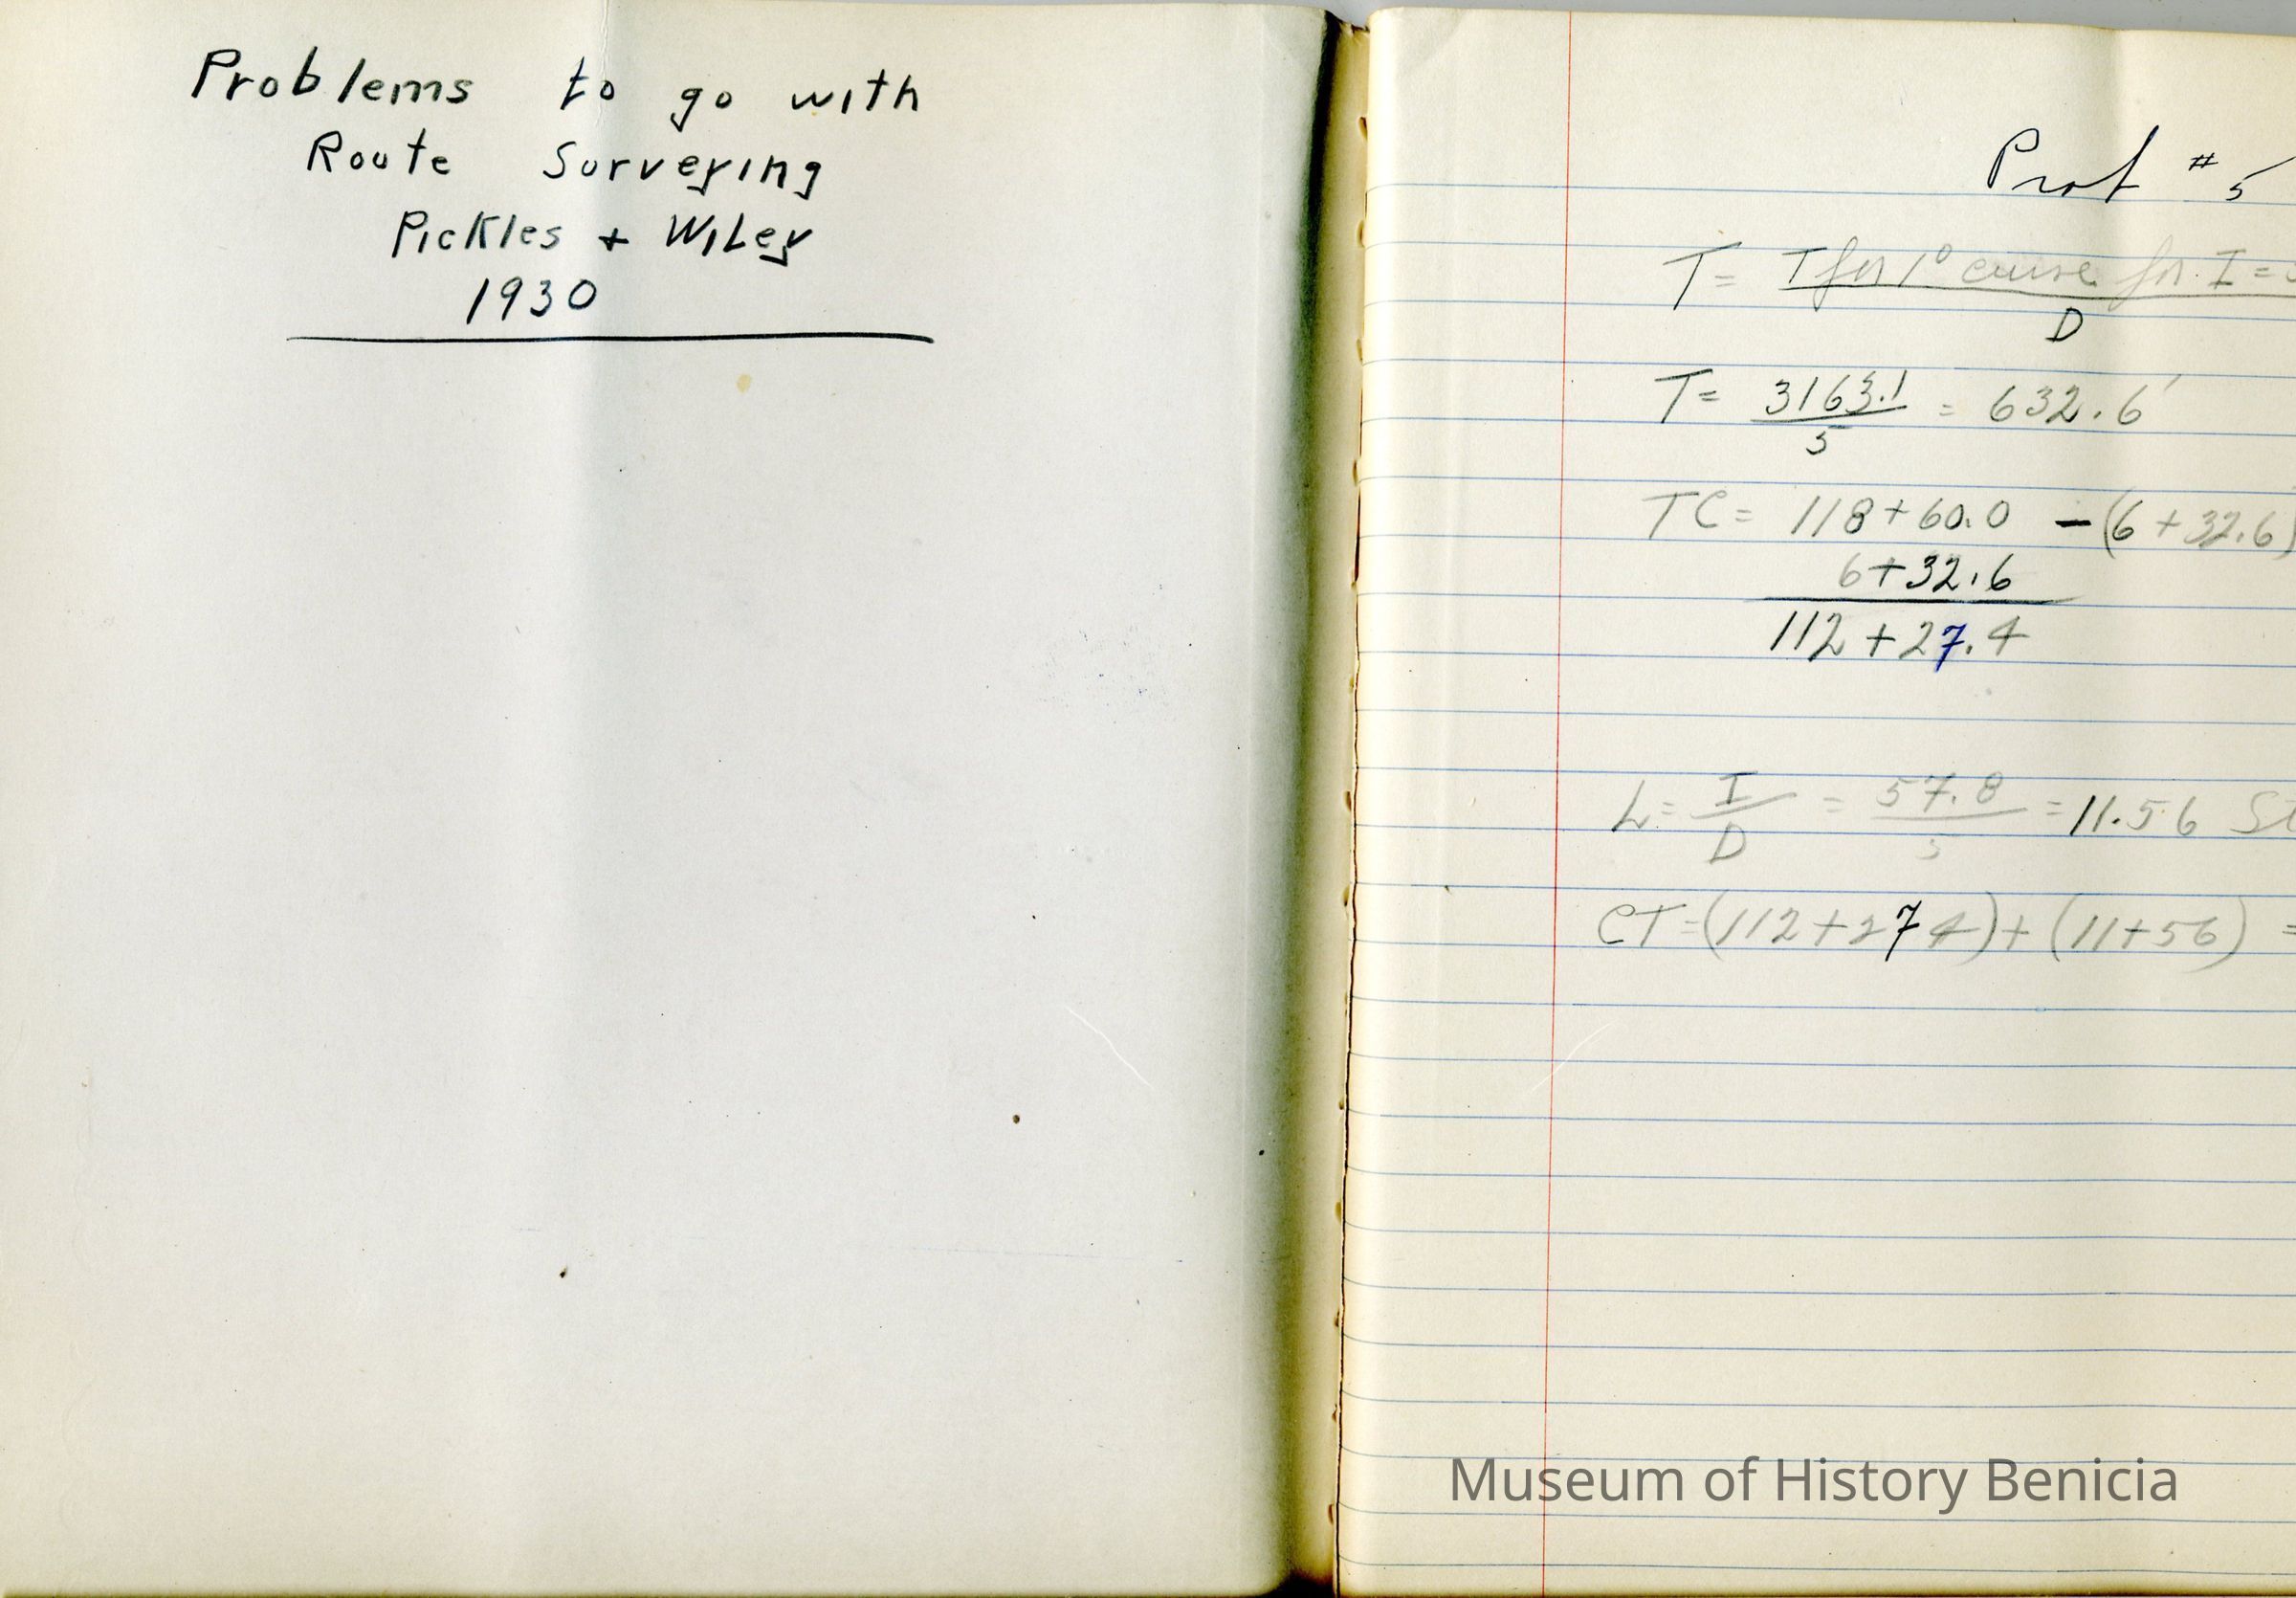 Problems to go with
Route Surveying
Pickles + Wiley
1930
Prob # 5
T = T for 1° curve for I =
D
T = 3163.1 = 632.6'
5
TC = 118+60.0 - (6+32.6)
6+32.6
112+27.4
L = I = 57.8 = 11.56 St
D 5
CT = (112+27 4) + (11+56) =
Museum of History Benicia